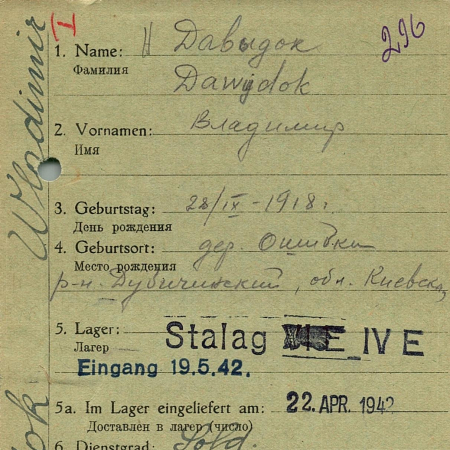 I
296
1. Name: Давыдок
Фамилия
Dawydok
2. Vornamen: Владимир
Имя
3. Geburtstag: 28/IX - 1918 г.
День рождения
4. Geburtsort: дер. Ошибки
Место рождения
р-н. Дубичинский, обл. Киевска
5. Lager: Stalag IV E
Лагерь
Eingang 19.5.42.
5a. Im Lager eingeliefert am: 22. APR. 1942
Доставлен в лагерь (число)
6. Dienstgrad: Sold.
Wlodimir
ok